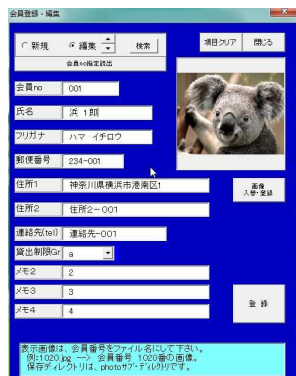 会員登録・編集
新規 編集 検索 項目クリア 閉じる
会員no指定読出
会員no 001
氏名 浜 1郎
フリガナ ハマ イチロウ
郵便番号 234-001
住所1 神奈川県横浜市港南区1
画像
入替・登録
住所2 住所2-001
連絡先(tel) 連絡先-001
貸出制限Gr a
メモ2 2
メモ3 3
メモ4 4
登録
表示画像は、会員番号をファイル名にして下さい。
例:1020.jpg ―> 会員番号 1020番の画像。
保存ディレクトリは、photoサブ・ディレクトリです。